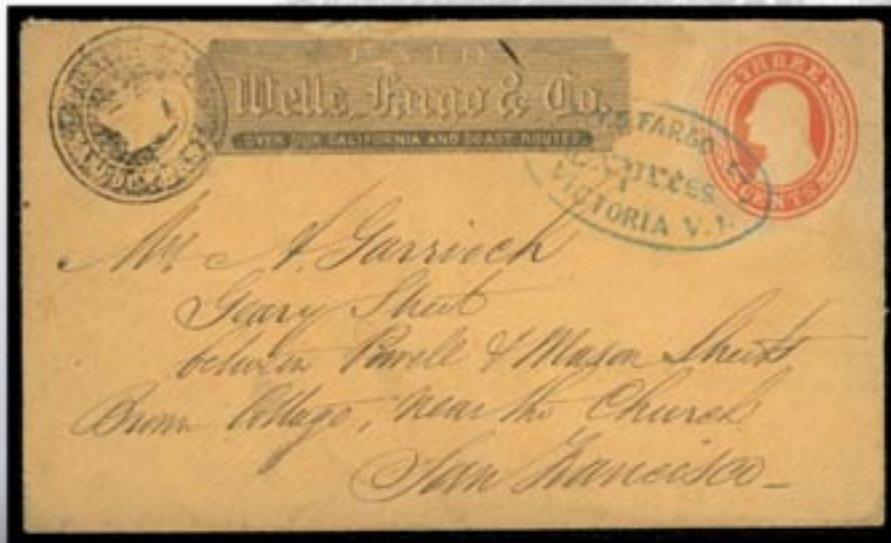 PAID
Wells, Fargo & Co.
OVER OUR CALIFORNIA AND COAST ROUTES
THREE
CENTS
FARGO
Express
VICTORIA V. I.
Mr A. Garrioch
Geary Street
between Powell & Mason Streets
Brown Cottage, near the Church
San Francisco